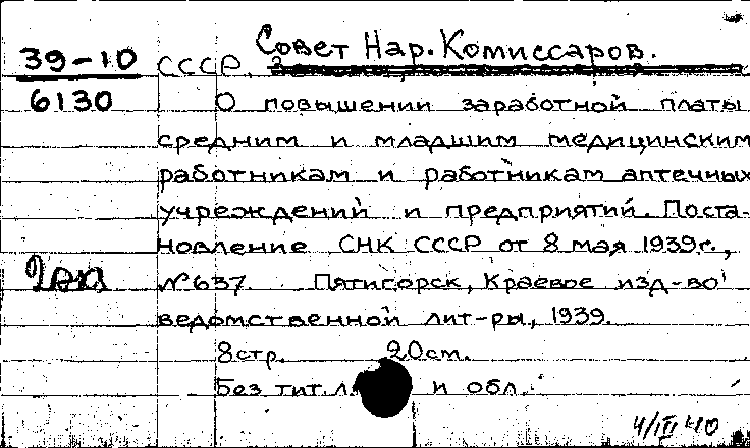 Совет Нар. Комиссаров.
39-10 СССР.
6130 О повышении заработной платы
средним и младшим медицинским
работникам и работникам аптечных
учреждений и предприятий. Поста-
новление СНК СССР от 8 мая 1939г.,
№637. Пятигорск, Краевое изд-во
ведомственной лит-ры, 1939.
8стр. 20см.
Без тит. л. и обл.